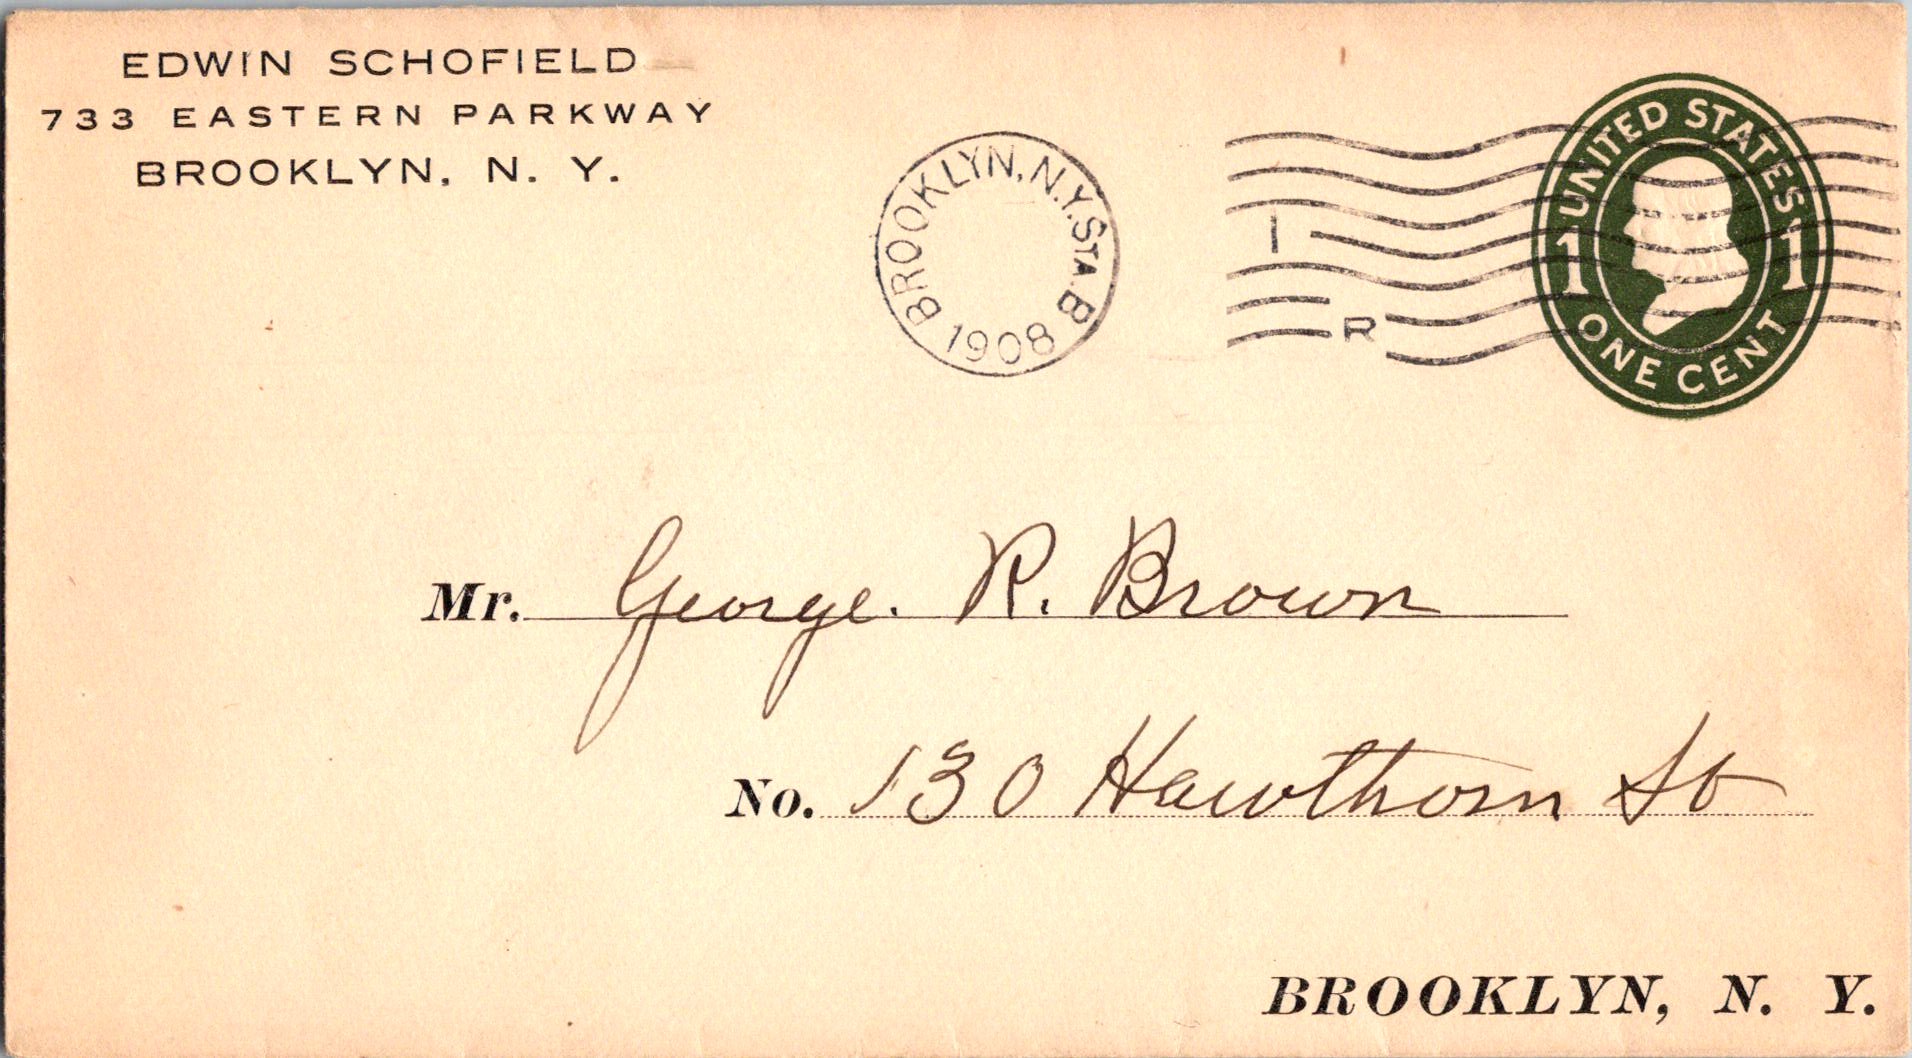 EDWIN SCHOFIELD
733 EASTERN PARKWAY
BROOKLYN, N. Y.
BROOKLYN, N.Y. STA. B
1908
1
R
UNITED STATES
1 1
ONE CENT
Mr. George. R. Brown
No. 130 Hawthorn St
BROOKLYN, N. Y.